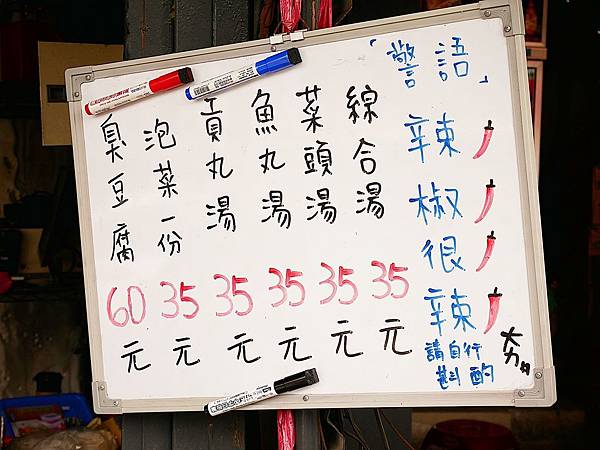 「警語」
辣椒很辣
請自行
斟酌
綜合湯 35元
菜頭湯 35元
魚丸湯 35元
貢丸湯 35元
泡菜一份 35元
臭豆腐 60元